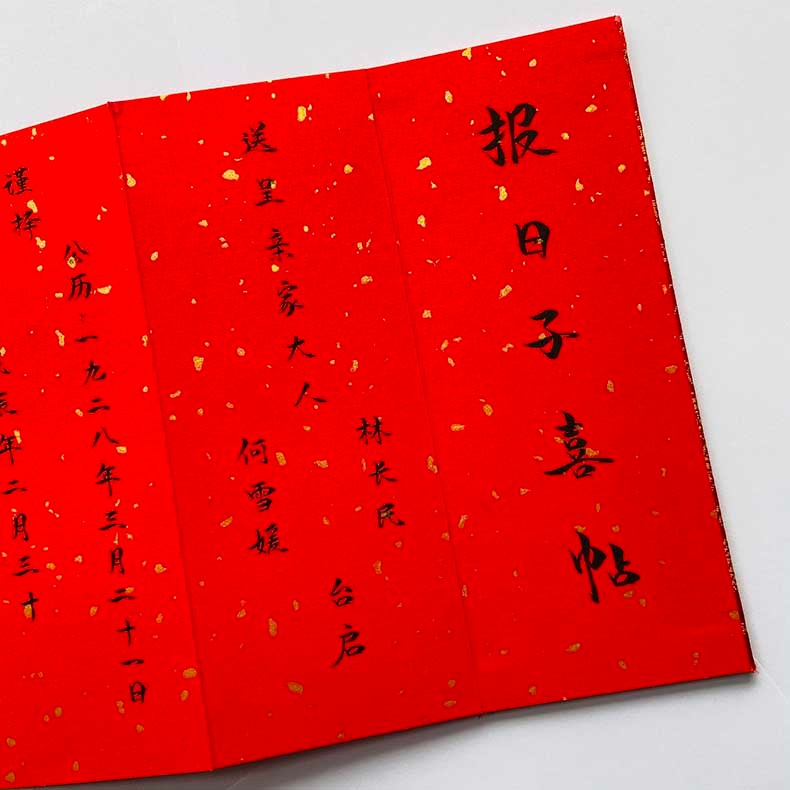 报日子喜帖
送呈亲家大人
林长民
何雪媛
台启
谨择
公历一九二八年三月二十一日
辰年二月三十